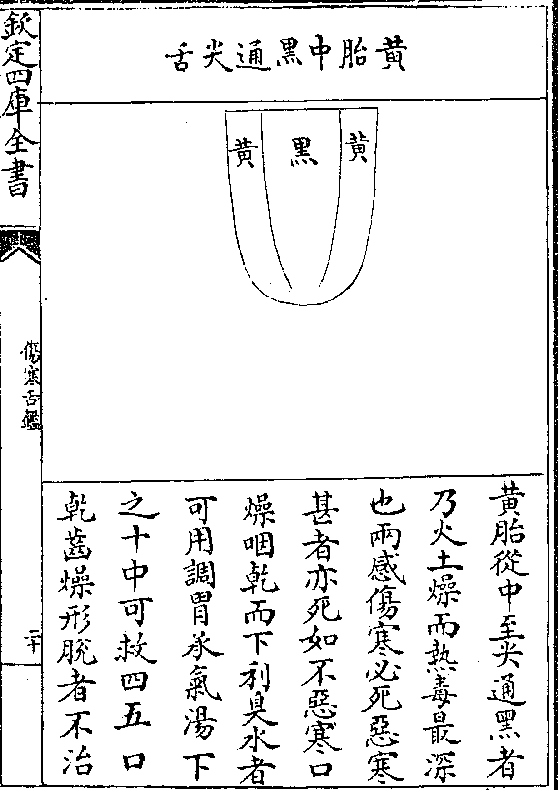 黄胎中黑通尖舌
黄
黑
黄
黄胎從中至尖通黑者
乃火土燥而熱毒最深
也兩感傷寒必死惡寒
甚者亦死如不惡寒口
燥咽乾而下利臭水者
可用調胃承氣湯下
之十中可救四五口
乾齒燥形脫者不治
欽定四庫全書
傷寒舌鑑
二十